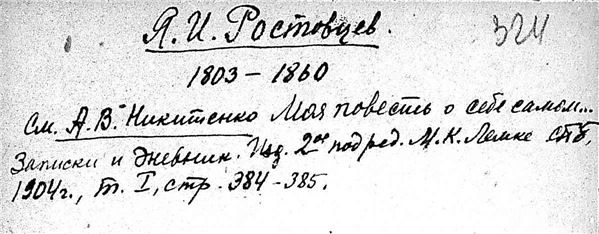 Я. И. Ростовцев. 324
1803 – 1860
См. А. В. Никитенко Моя повесть о себе самом...
Записки и дневник. Изд. 2ое под ред. М. К. Лемке СПб,
1904 г., т. I, стр. 384-385.